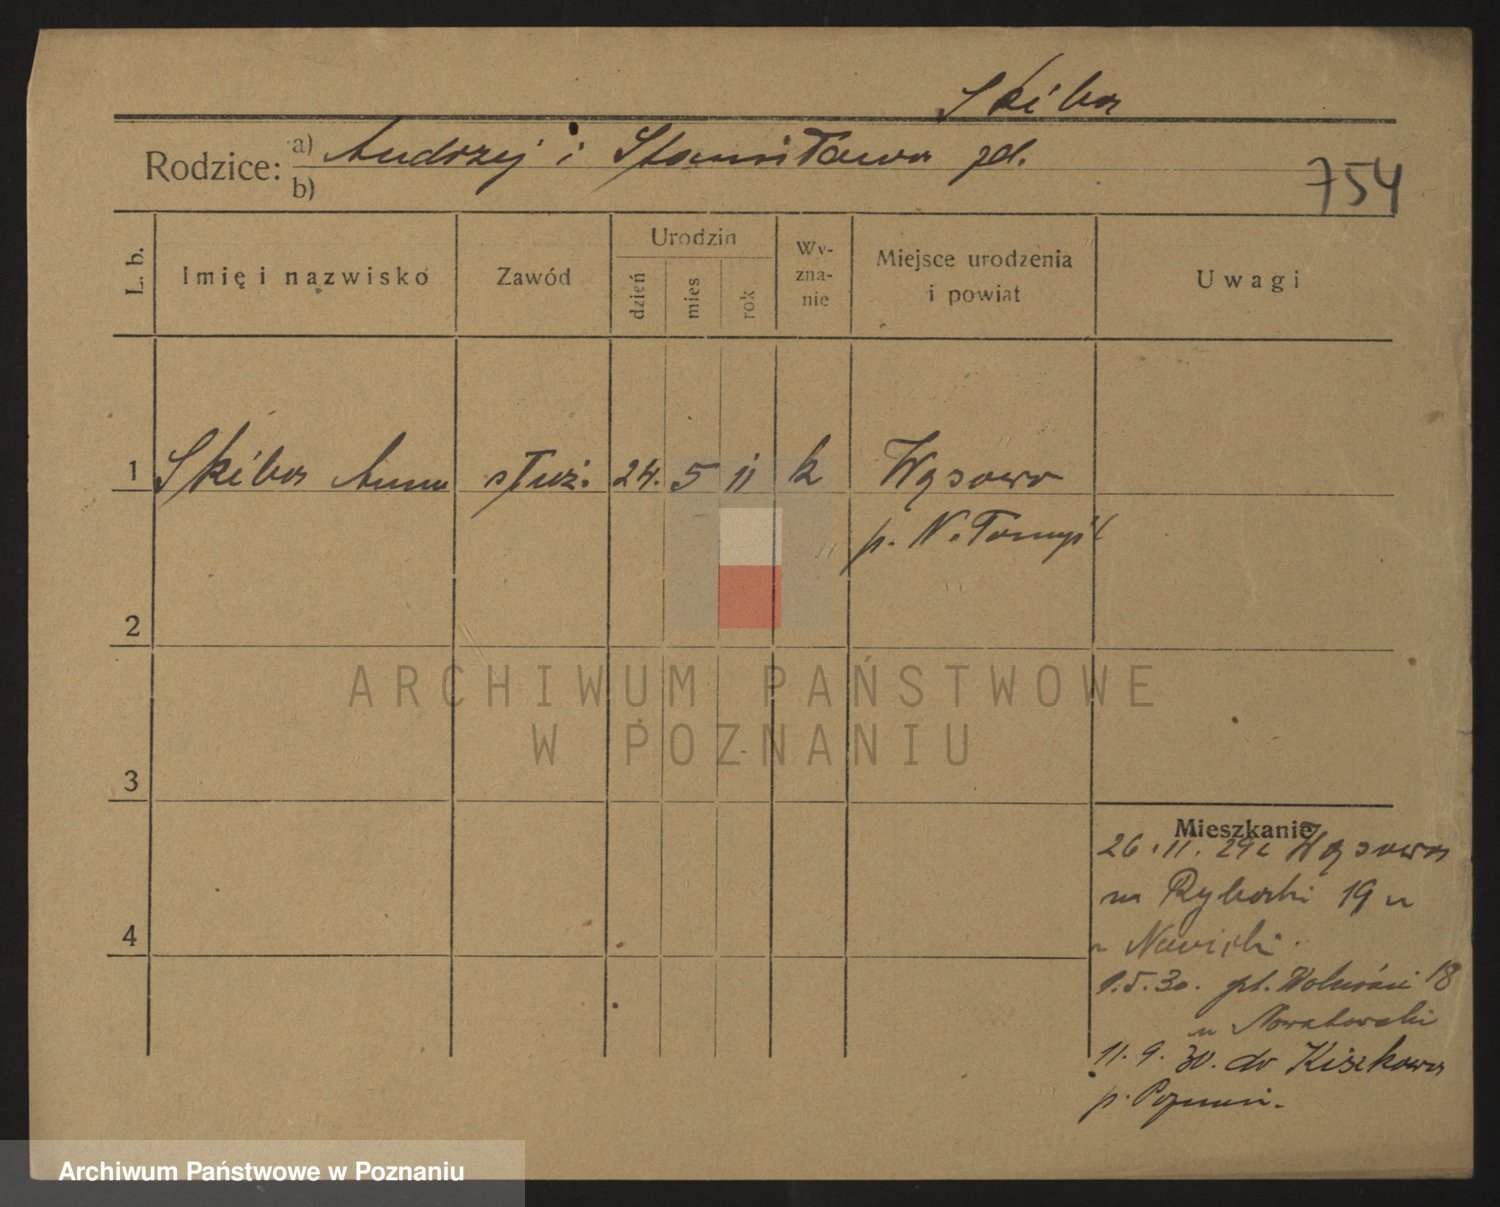 Skiba
Rodzice: a) Andrzej i Stanisława zd.
b)
754
L. b. Imię i nazwisko Zawód Urodzin dzień mies rok Wy-zna-nie Miejsce urodzenia i powiat Uwagi
1 Skiba Anna służ. 24. 5 11 k Wąsowo
p. N. Tomyśl
2
3
4
Mieszkanie
26. 11. 29 z Wąsowa
na Rybaki 19 u
1.5.30. pl. Wolności 18
u Nowakowski
11. 9. 30. do Kiszkowa
p. Poznań.
ARCHIWUM PAŃSTWOWE
W POZNANIU
Archiwum Państwowe w Poznaniu